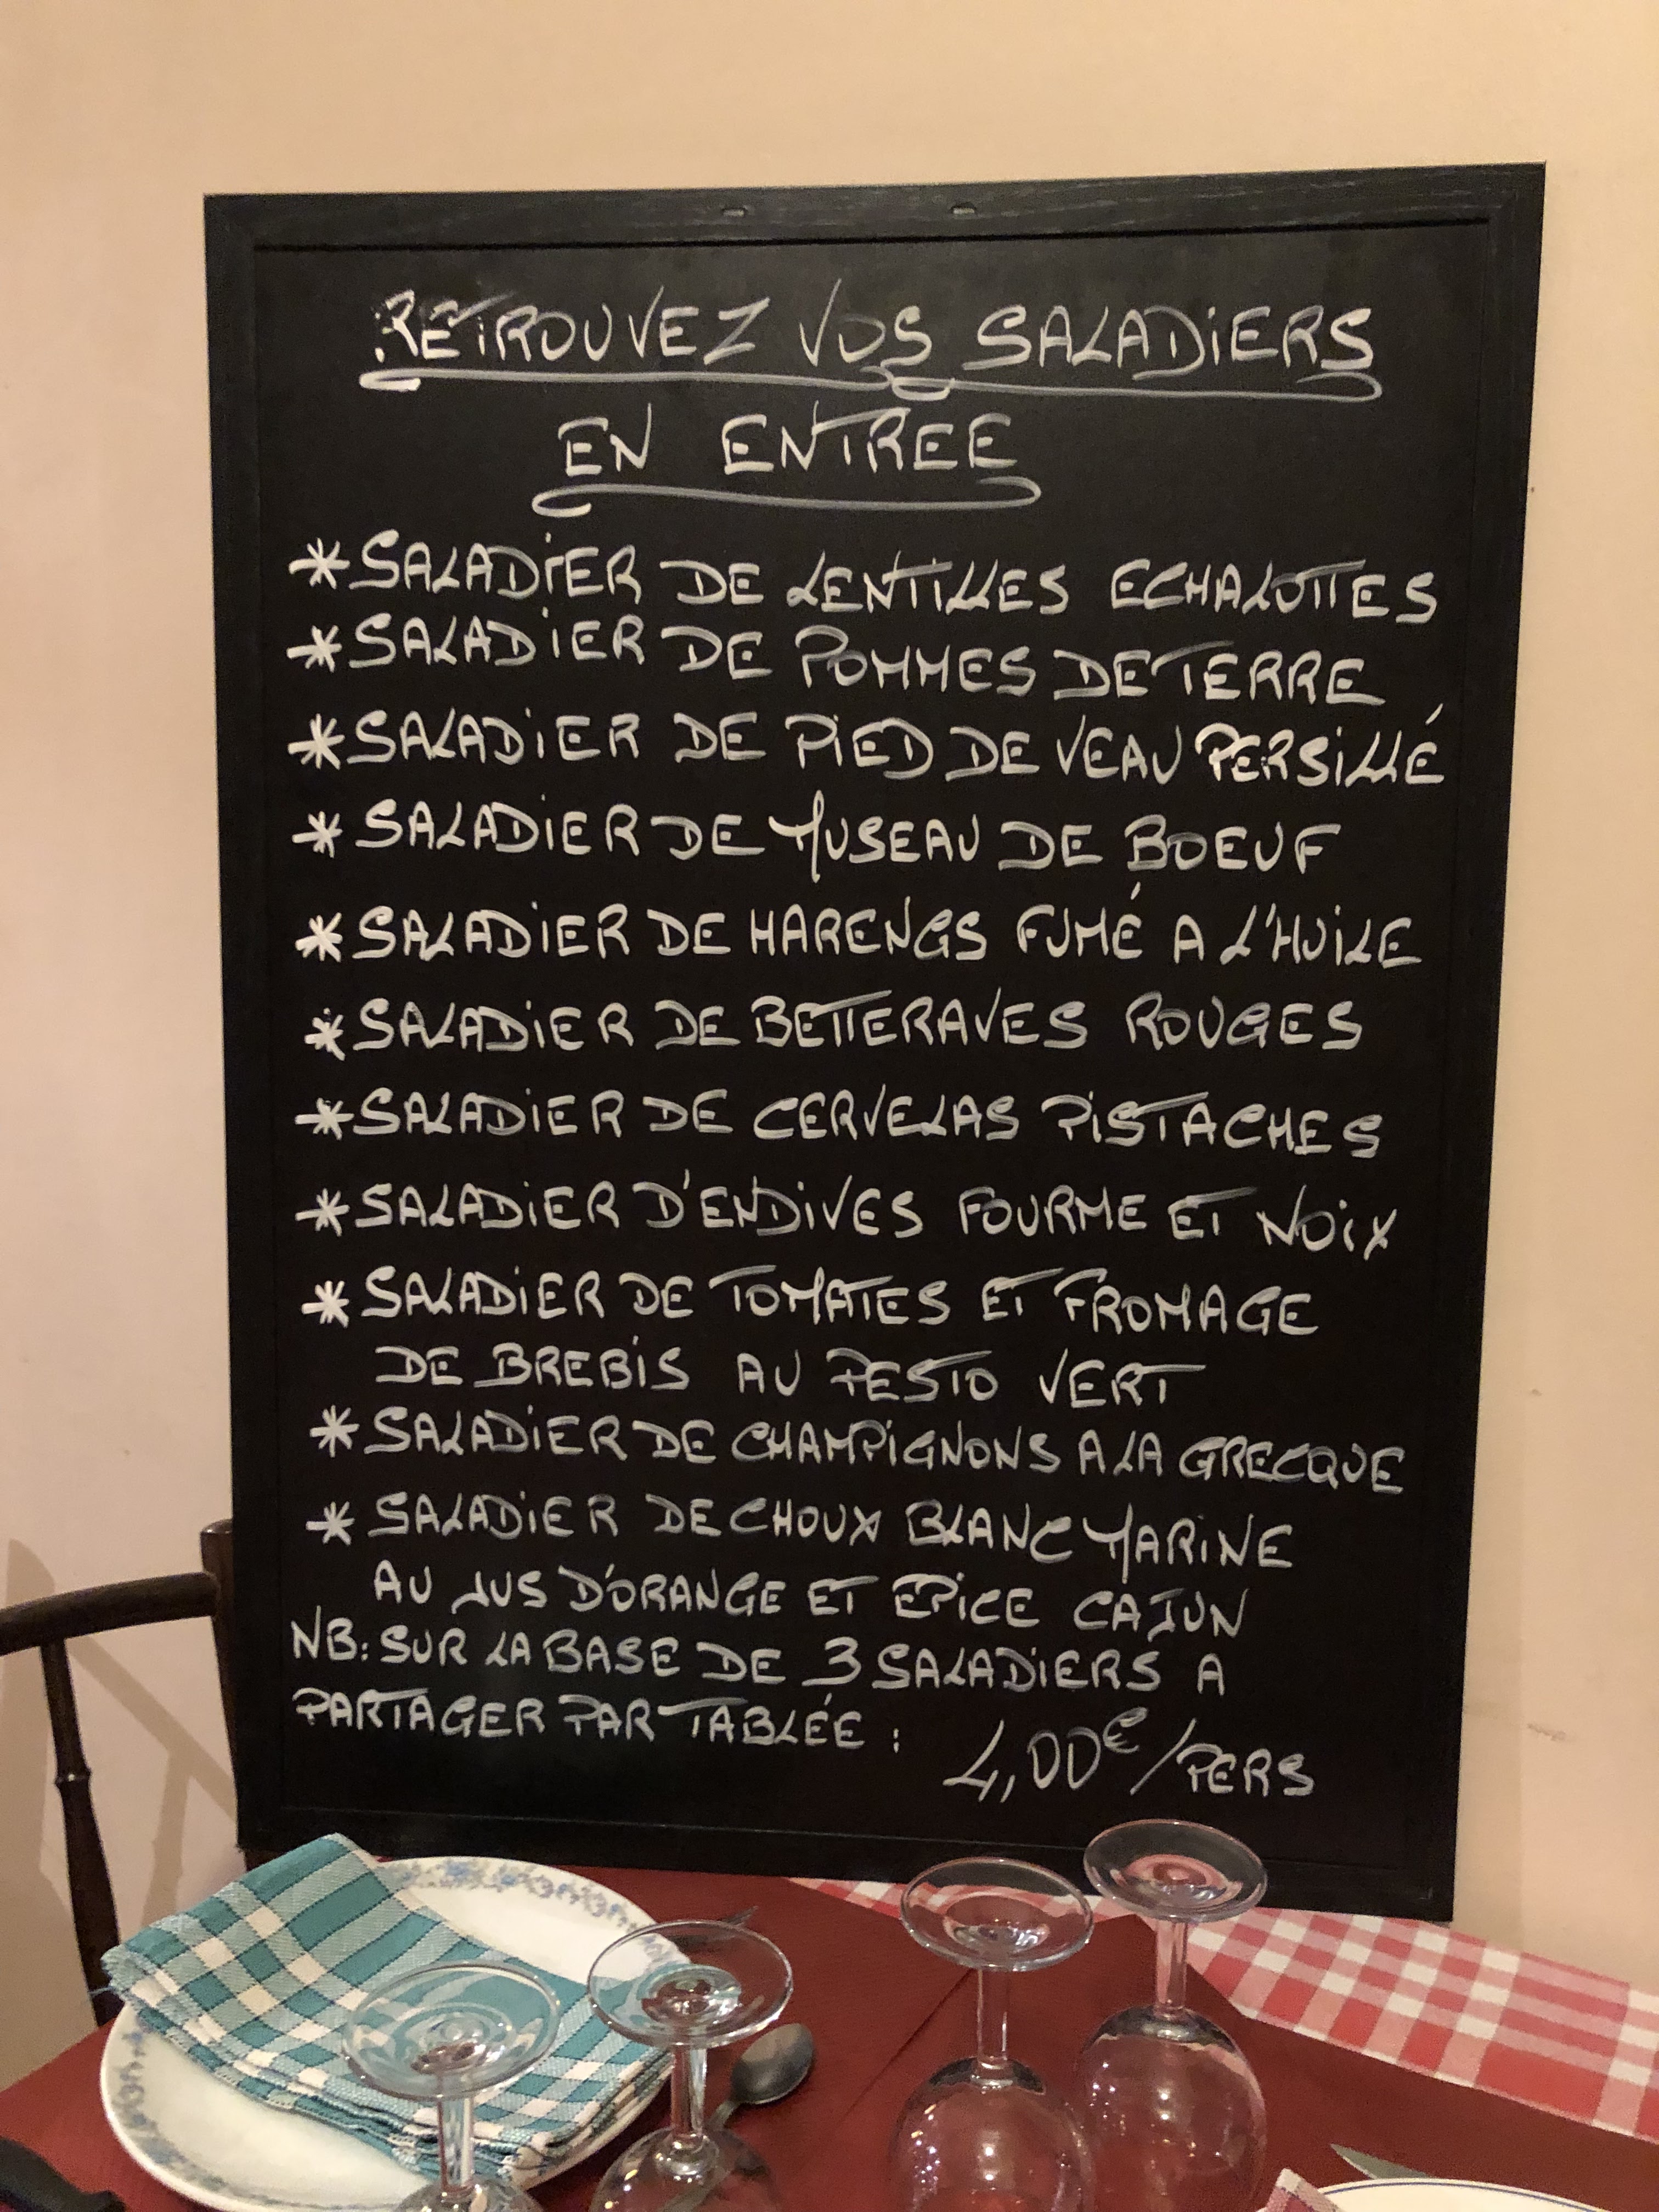 RETROUVEZ VOS SALADIERS
EN ENTREE
* SALADIER DE LENTILLES ECHALOTTES
* SALADIER DE POMMES DE TERRE
* SALADIER DE PIED DE VEAU PERSILLÉ
* SALADIER DE MUSEAU DE BOEUF
* SALADIER DE HARENGS FUMÉ A L'HUILE
* SALADIER DE BETTERAVES ROUGES
* SALADIER DE CERVELAS PISTACHES
* SALADIER D'ENDIVES FOURME ET NOIX
* SALADIER DE TOMATES ET FROMAGE
DE BREBIS AU PESTO VERT
* SALADIER DE CHAMPIGNONS A LA GRECQUE
* SALADIER DE CHOUX BLANC MARINE
AU JUS D'ORANGE ET EPICE CAJUN
NB: SUR LA BASE DE 3 SALADIERS A
PARTAGER PAR TABLÉE :
4,00€/PERS